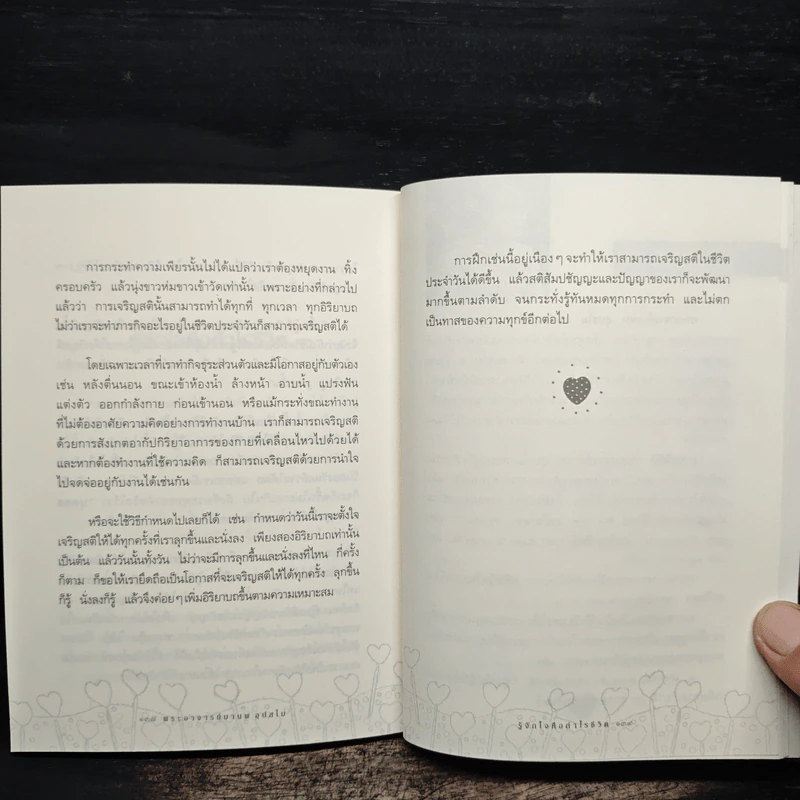 การกระทำความเพียรนั้นไม่ได้แปลว่าเราต้องหยุดงาน ทิ้ง
ครอบครัว แล้วนุ่งขาวห่มขาวเข้าวัดเท่านั้น เพราะอย่างที่กล่าวไป
แล้วว่า การเจริญสตินั้นสามารถทำได้ทุกที่ ทุกเวลา ทุกอิริยาบถ
ไม่ว่าเราจะทำภารกิจอะไรอยู่ในชีวิตประจำวันก็สามารถเจริญสติได้
โดยเฉพาะเวลาที่เราทำกิจธุระส่วนตัวและมีโอกาสอยู่กับตัวเอง
เช่น หลังตื่นนอน ขณะเข้าห้องน้ำ ล้างหน้า อาบน้ำ แปรงฟัน
แต่งตัว ออกกำลังกาย ก่อนเข้านอน หรือแม้กระทั่งขณะทำงาน
ที่ไม่ต้องอาศัยความคิดอย่างการทำงานบ้าน เราก็สามารถเจริญสติ
ด้วยการสังเกตอากัปกิริยาอาการของกายที่เคลื่อนไหวไปด้วยได้
และหากต้องทำงานที่ใช้ความคิด ก็สามารถเจริญสติด้วยการนำใจ
ไปจดจ่ออยู่กับงานได้เช่นกัน
หรือจะใช้วิธีกำหนดไปเลยก็ได้ เช่น กำหนดว่าวันนี้เราจะตั้งใจ
เจริญสติให้ได้ทุกครั้งที่เราลุกขึ้นและนั่งลง เพียงสองอิริยาบถเท่านั้น
เป็นต้น แล้ววันนั้นทั้งวัน ไม่ว่าจะมีการลุกขึ้นและนั่งลงที่ไหน กี่ครั้ง
ก็ตาม ก็ขอให้เรายึดถือเป็นโอกาสที่จะเจริญสติให้ได้ทุกครั้ง ลุกขึ้น
ก็รู้ นั่งลงก็รู้ แล้วจึงค่อยๆ เพิ่มอิริยาบถขึ้นตามความเหมาะสม
๑๓๘ พระอาจารย์มานพ อุปสโม
การฝึกเช่นนี้อยู่เนืองๆ จะทำให้เราสามารถเจริญสติในชีวิต
ประจำวันได้ดีขึ้น แล้วสติสัมปชัญญะและปัญญาของเราก็จะพัฒนา
มากขึ้นตามลำดับ จนกระทั่งรู้ทันหมดทุกการกระทำ และไม่ตก
เป็นทาสของความทุกข์อีกต่อไป
รู้จักใจคือกำไรชีวิต ๑๓๙